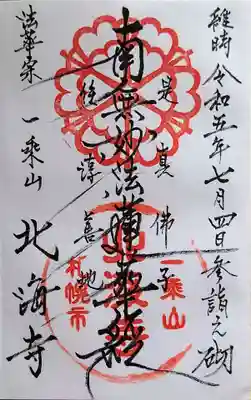 維時 令和五年七月四日 参詣之砌
是真佛子
南無妙法蓮華経
住淳善地
法華宗 一乘山 北海寺
一乘山
札幌市